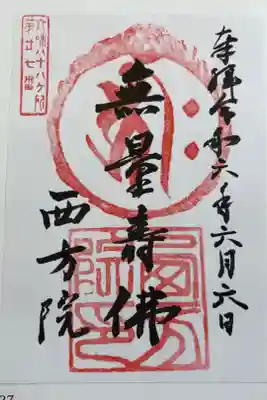 奉拝 令和六年六月六日
無量壽佛
西方院
八十八ヶ所
第廿七番
27